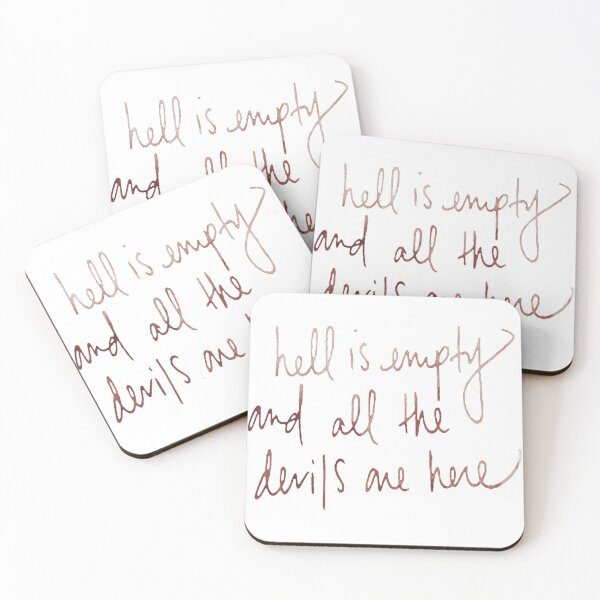 hell is empty
and all the
hell is empty
and all the
devils are here
hell is empty
and all the
devils are
hell is empty
and all the
devils are here